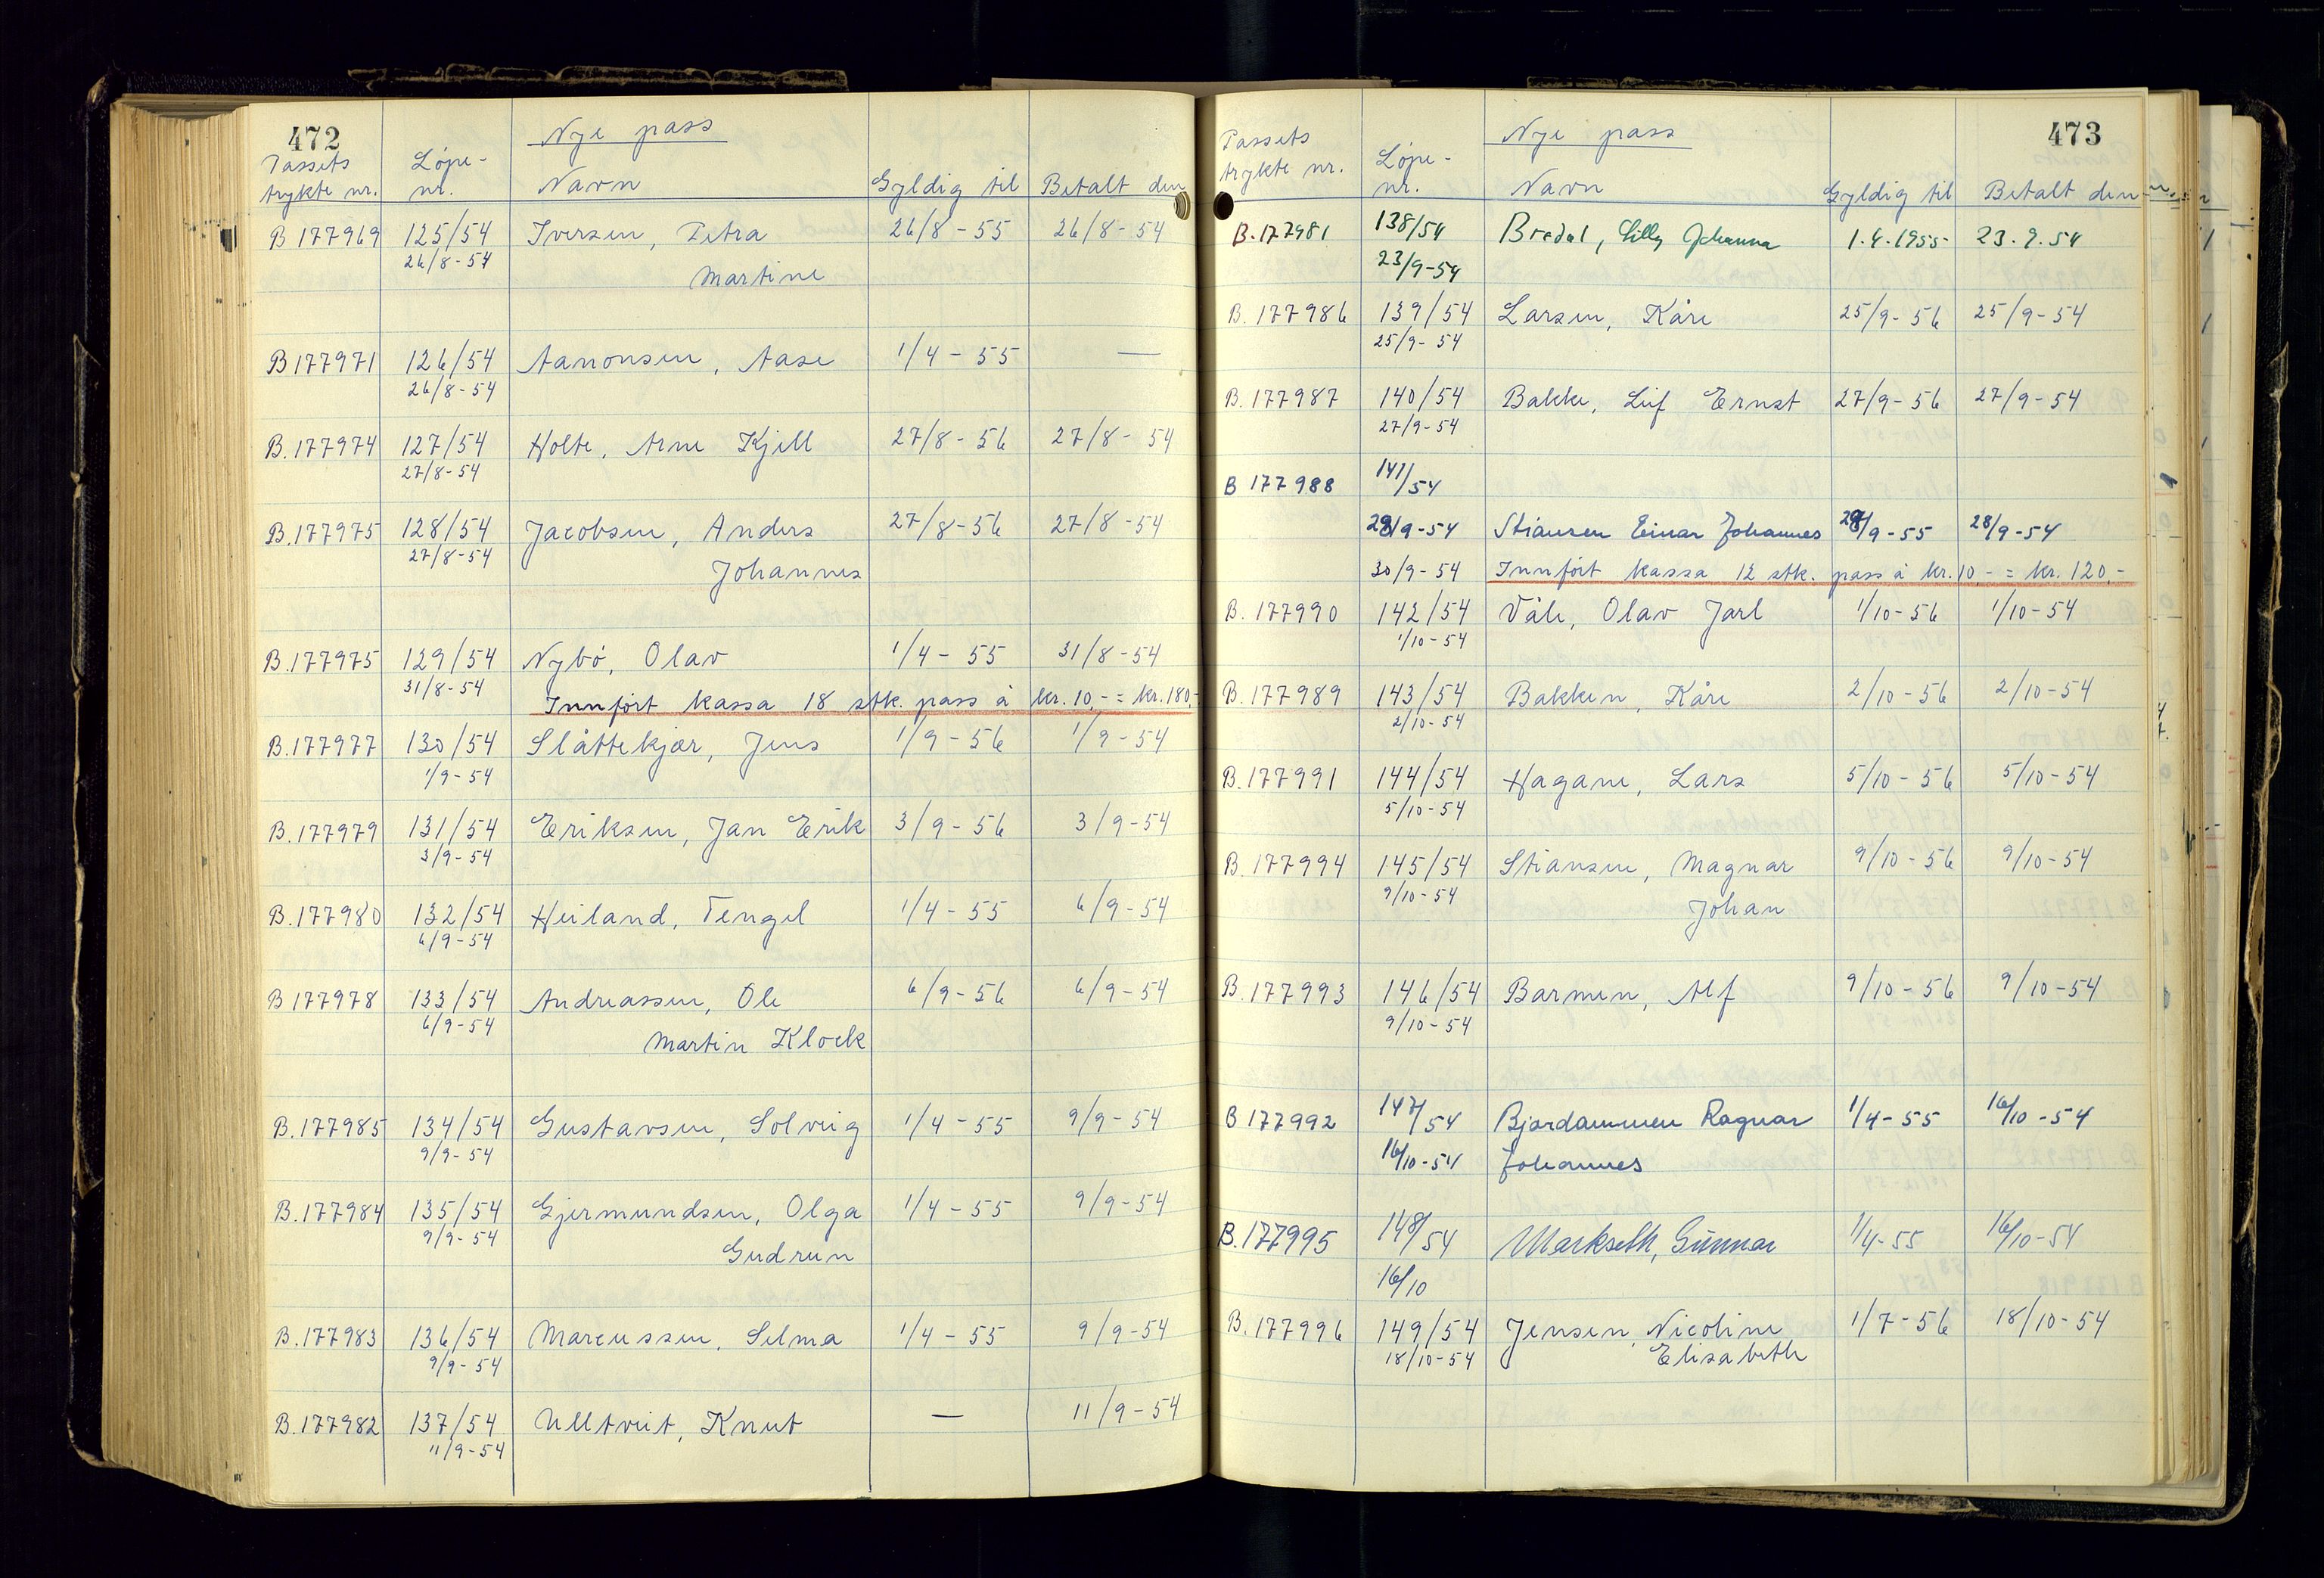 472
Nye pass
Passets Løpe-
trykte nr. nr. Navn Gyldig til Betalt den
B 177969 125/54 Iversen, Petra 26/8-55 26/8-54
26/8-54 Martine
B 177971 126/54 Aanonsen, Aase 1/4-55 —
26/8-54
B.177974 127/54 Holte, Arne Kjell 27/8-56 27/8-54
27/8-54
B.177975 128/54 Jacobsen, Anders 27/8-56 27/8-54
27/8-54 Johannes
B.177975 129/54 Nybø, Olav 1/4-55 31/8-54
31/8-54
Innført kassa 18 stk. pass à kr. 10,- = kr. 180,-
B.177977 130/54 Slåttekjær, Jens 1/9-56 1/9-54
1/9-54
B.177979 131/54 Eriksen, Jan Erik 3/9-56 3/9-54
3/9-54
B.177980 132/54 Heiland, Tengel 1/4-55 6/9-54
6/9-54
B 177978 133/54 Andreassen, Ole 6/9-56 6/9-54
6/9-54 Martin Klock
B.177985 134/54 Gustavsen, Solveig 1/4-55 9/9-54
9/9-54
B.177984 135/54 Gjermundsen, Olga 1/4-55 9/9-54
9/9-54 Gudrun
B.177983 136/54 Marcussen, Selma 1/4-55 9/9-54
9/9-54
B.177982 137/54 Ulltveit, Knut — 11/9-54
11/9-54
473
Nye pass
Passets Løpe-
trykte nr. nr. Navn Gyldig til Betalt den
B.177981 138/54 Bredal, Lilly Johanna 1.4.1955 23.9.54
23/9-54
B.177986 139/54 Larsen, Kåre 25/9-56 25/9-54
25/9-54
B.177987 140/54 Bakke, Leif Ernst 27/9-56 27/9-54
27/9-54
B 177988 141/54
28/9-54 Stiansen Einar Johannes 28/9-55 28/9-54
30/9-54 Innført kassa 12 stk. pass à kr. 10,- = kr. 120,-
B.177990 142/54 Våle, Olav Jarl 1/10-56 1/10-54
1/10-54
B.177989 143/54 Bakken, Kåre 2/10-56 2/10-54
2/10-54
B.177991 144/54 Hagane, Lars 5/10-56 5/10-54
5/10-54
B.177994 145/54 Stiansen, Magnar 9/10-56 9/10-54
9/10-54 Johan
B.177993 146/54 Barmen, Alf 9/10-56 9/10-54
9/10-54
B 177992 147/54 Bjordammen Ragnar 1/4-55 16/10-54
16/10-54 Johannes
B.177995 148/54 Markseth, Gunnar 1/4-55 16/10-54
16/10
B.177996 149/54 Jensen, Nicoline 1/7-56 18/10-54
18/10-54 Elisabeth